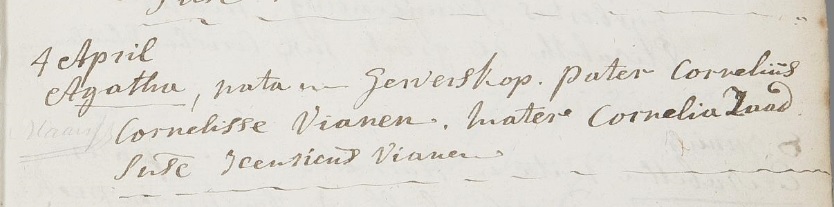 4 April
Agatha, nata in Gerverskop. pater Corneliüs
Cornelisse Vianen. mater Cornelia Zaad
Susc Vianen